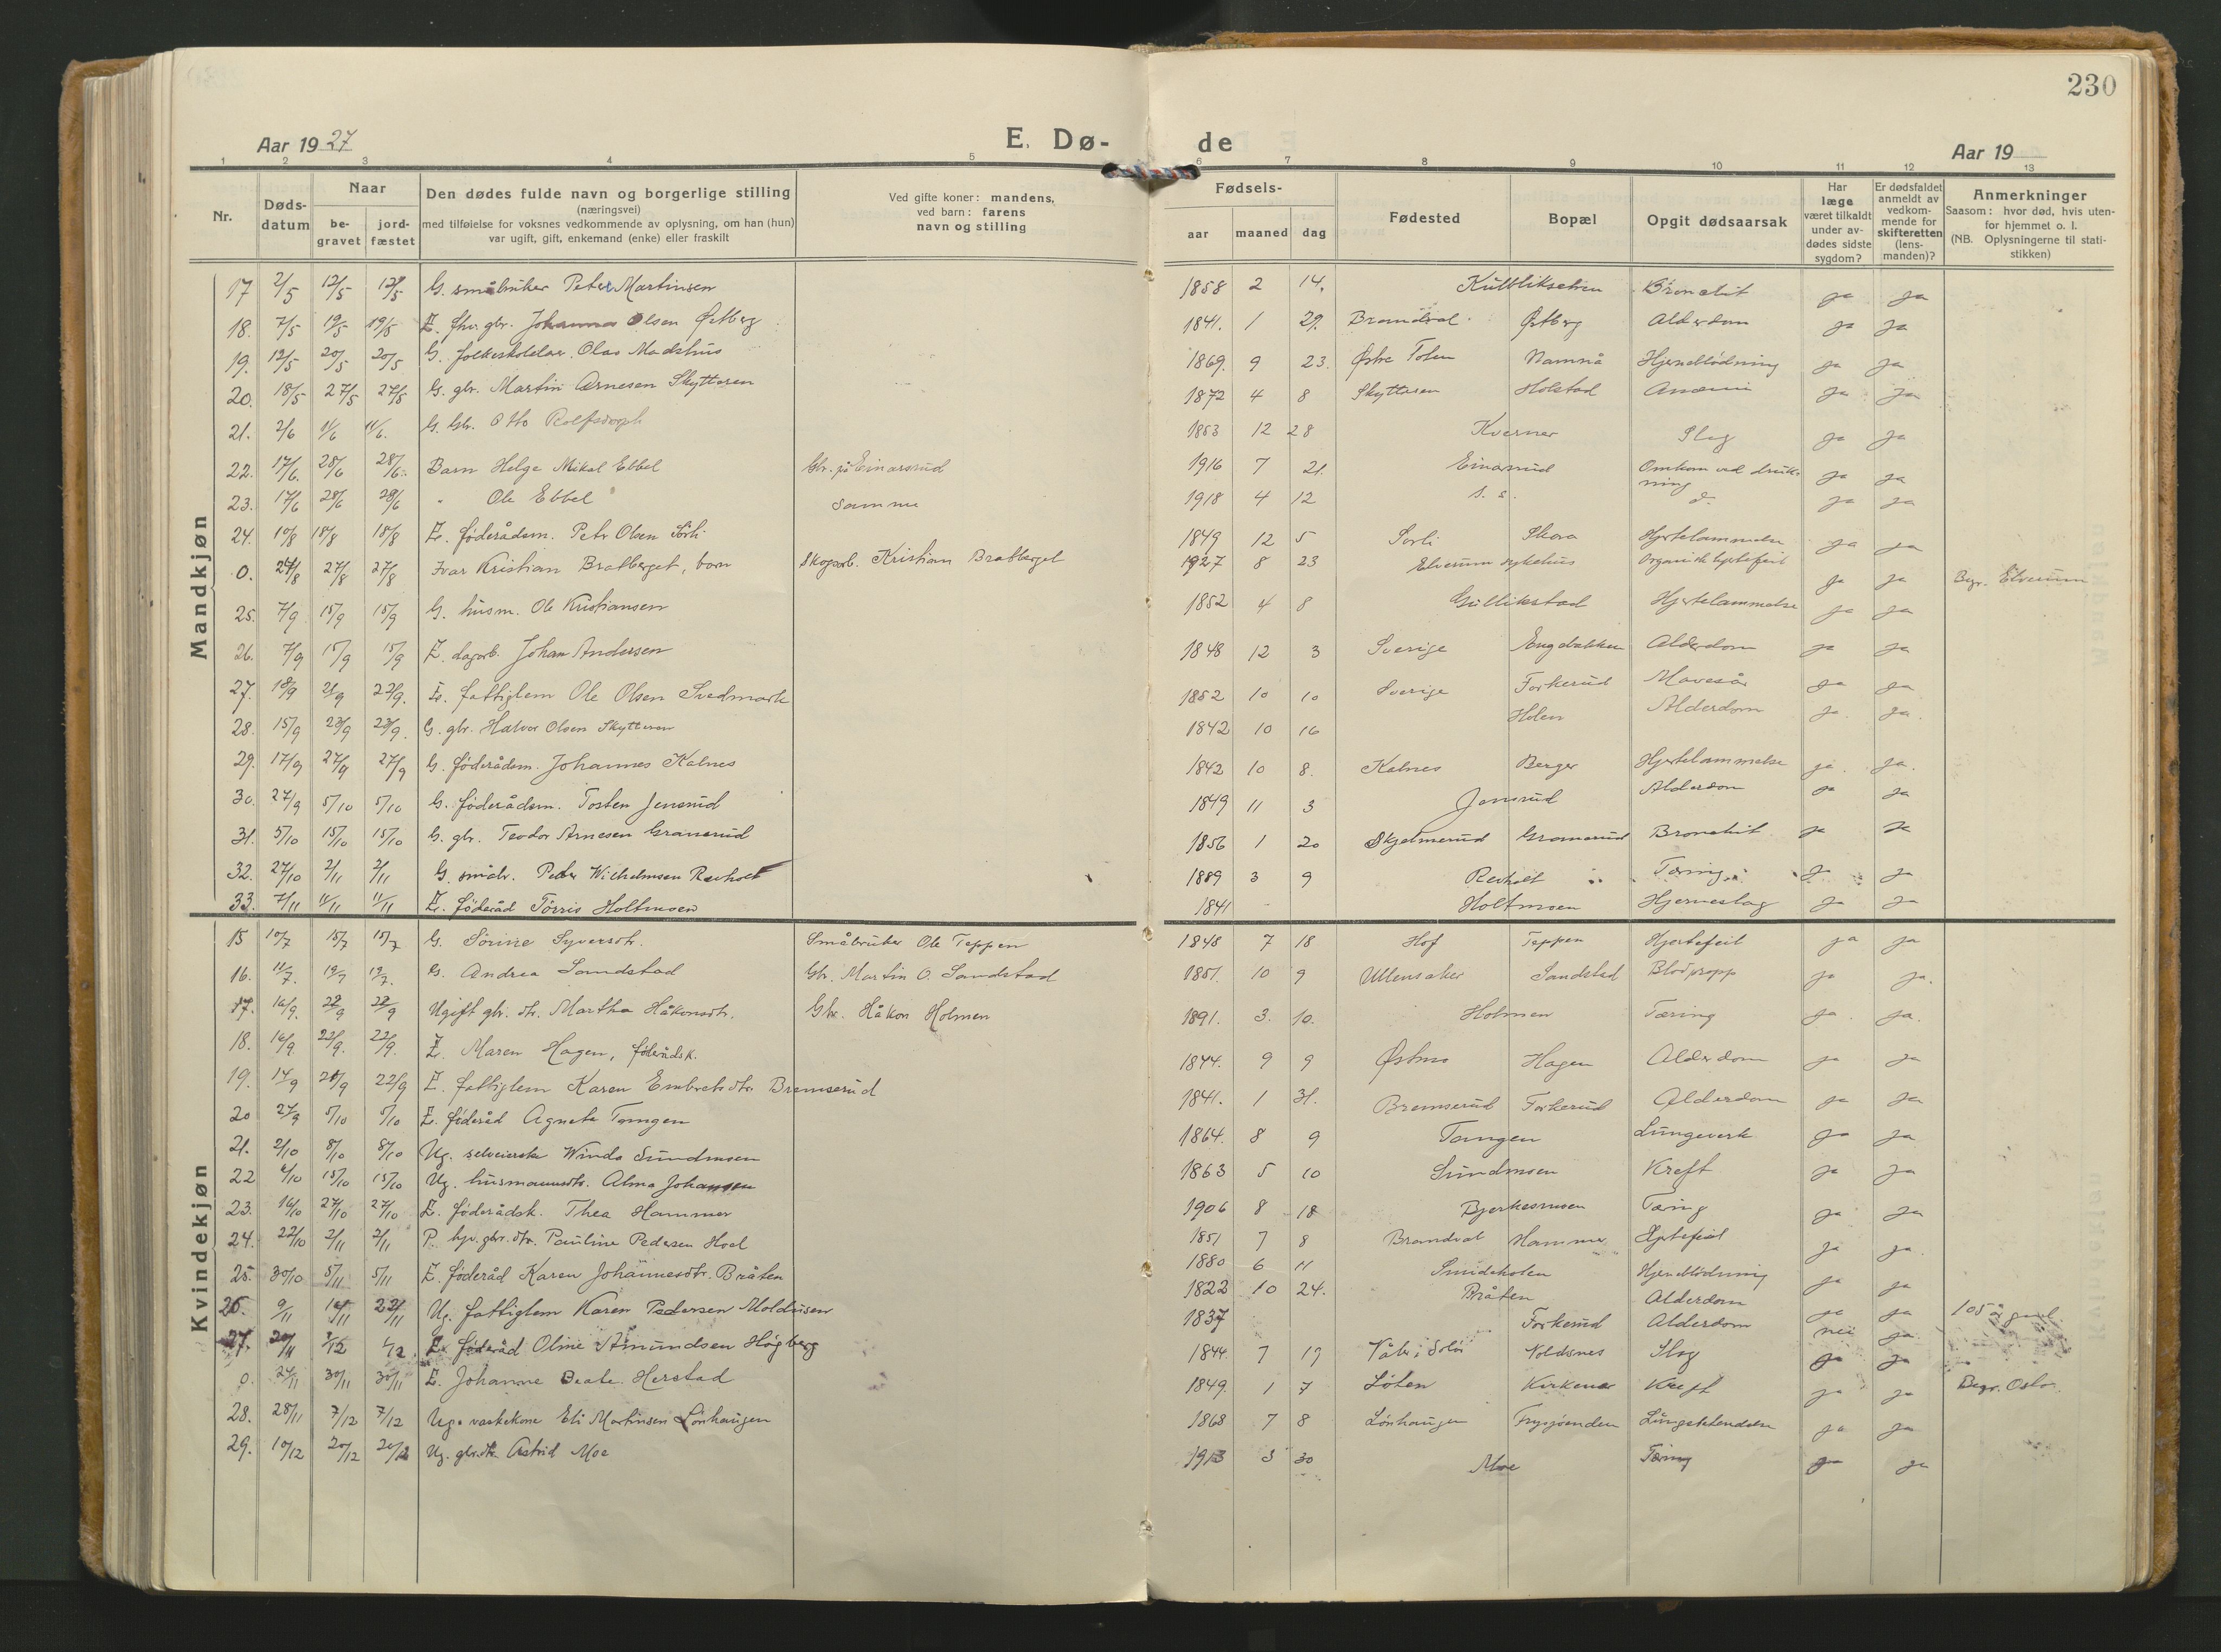 230
Aar 1927
E. Dø-
de
Aar 19
1 2 3 4 5 6 7 8 9 10 11 12 13
Nr.
Døds-
datum
Naar
be-
gravet
jord-
fæstet
Den dødes fulde navn og borgerlige stilling
(næringsvei)
med tilføielse for voksnes vedkommende av oplysning, om han (hun)
var ugift, gift, enkemand (enke) eller fraskilt
Ved gifte koner: mandens,
ved barn: farens
navn og stilling
Fødsels-
aar maaned dag
Fødested
Bopæl
Opgit dødsaarsak
Har
læge
været tilkaldt
under av-
dødes sidste
sygdom?
Er dødsfaldet
anmeldt av
vedkom-
mende for
skifteretten
(lens-
manden)?
Anmerkninger
Saasom: hvor død, hvis uten-
for hjemmet o. l.
(NB. Oplysningerne til stati-
stikken)
Mandkjøn
17 2/5 12/5 12/5 G. småbruker Peter Martinsen 1858 2 14. Bronchit ja ja
18. 7/5 19/5 19/5 E. fhv. gbr. Olsen Østberg 1841. 1 29. Brandval Østberg Alderdom ja ja
19. 12/5 20/5 20/5 G. folkeskolelær. Olas Madshus 1869. 9 23. Østre Toten Namnå Hjerneblödning ja ja
20. 18/5 27/5 27/5 G. gbr. Martin Arnesen Skytteren 1872 4 8 Skytteren Holstad Anæmi ja ja
21. 2/6 11/6 11/6. G. Gbr. Otto 1853 12 28 Kverner Slag ja ja
22. 17/6. 28/6 28/6. Barn Helge Mikal Ebbel Gbr. på Einarsrud 1916 7 21. Einarsrud Omkom ved drukning ja ja
23. 17/6 28/6 28/6 " Ole Ebbel Samme 1918 4 12 s. s. do ja ja
24. 10/8 18/8 18/8 E. föderådsm. Peter Olsen Sörli 1849 12 5 Sorli Skara Hjertelammelse ja ja
0. 24/8 27/8 27/8 Ivar Kristian Bratberget, barn Skogsarb. Kristian Bratberget 1927 8 23 Elverum sykehus Organisk hjertefeil ja ja Begr. Elverum
25. 7/9 15/9 15/9 G. husm. Ole Kristiansen 1852 4 8 Gullikstad Hjertelammelse ja ja
26. 7/9 15/9 15/9 E. dagarb. Johan Andersen 1848 12 3 Sverige Engebakken Alderdom ja ja
27. 18/9 21/9 22/9. fattiglem Ole Olsen Svedmark 1852 10 10 Sverige Forkerud Mavesår ja ja
28. 15/9 23/9 23/9. G. gbr. Halvor Olsen Skytteren 1842 10 16 Holen Alderdom ja. ja.
29. 17/9 27/9 27/9 G. föderådsm. Johannes Kalnes 1842 10 8. Kalnes Berger Hjertelammelse ja. ja.
30. 27/9 5/10 5/10 G. föderådsm. Tosten Jensrud 1849 11 3 Jensrud Alderdom ja ja
31. 5/10 15/10 15/10 G. gbr. Teodor Arnesen Granerud 1856 1 20 Skjelmerud Granerud Bronchit ja ja
32. 27/10 2/11 2/11 G. småbr. Peder Wilhelmsen Revholt 1889 3 9 Revholt Tæring ja ja
33. 7/11 11/11 11/11 E. föderåd Törris Holtmoen 1841 Holtmoen Hjerneslag ja ja
Kvindekjøn
15 10/7 15/7 15/7 G. Sörine Syversdtr. Småbruker Ole Teppen 1848 7 18 Hof Teppen Hjertefeil ja ja
16. 11/7 19/7 19/7. G. Andrea Sandstad Gbr. Martin O. Sandstad 1851. 10 9 Ullensaker Sandstad Blodpropp ja ja.
17. 16/9. 22/9 22/9 Ugift gbr. dtr. Martha Håkonsdtr. Gbr. Håkon Holmen 1891. 3. 10. Holmen Tæring ja ja.
18. 16/9. 22/9. 22/9. E. Maren Hagen, föderådsk. 1844. 9 9 Østmo Hagen Alderdom ja ja
19. 14/9 21/9 22/9 E. fattiglem Karen Embretsdtr. Bremserud 1841. 1 31. Bremserud Forkerud Alderdom ja ja
20 27/9 5/10 5/10 E. föderåd Agnete Tangen 1864. 8 9 Tangen Lungeverk ja ja
21. 2/10 8/10 8/10 Ug. selveierske Winda Sundmoen 1863 5 10 Sundmoen Kreft ja ja
22 6/10 15/10 15/10 Ug. husmannsdtr. Alma Johansen 1906 8 18 Bjerkesmoen Tæring ja ja
23. 16/10 27/10 27/10 E. föderådsk. Thea Hammer 1851 7 8 Brandval Hammer Hjertefeil ja ja.
24. 22/10 2/11 2/11 hjv. gbr. dtr. Pauline Pedersen Hoel 1880 6 11 Hjerneblödning ja ja
25. 30/10 5/11 5/11 E. föderåd Karen Johannesdtr. Bråten 1822 10 24. Bråten Alderdom ja ja 105 år gml.
26. 9/11 22/11 Ug. fattiglem Karen Pedersen 1837 Forkerud Alderdom nei ja
27. E. föderåd Oline Amundsen Högberg 1844. 7 19 Slag ja ja
0. 24/11 30/11 30/11 E. Johanne Beate Herstad 1849. 1 7 Löten Kirkenær Kreft ja ja Begr. Oslo
28. 28/11 7/12 7/12 Ug. vaskekone Eli Martinsen Lönhaugen 1868 7 8 Lönhaugen Frysjöenden Lungebetendelse ja ja
29. 10/12 20/12 20/12 Ug. gbr.dtr. Astrid Moe 1913 3 30 Moe Tæring ja ja